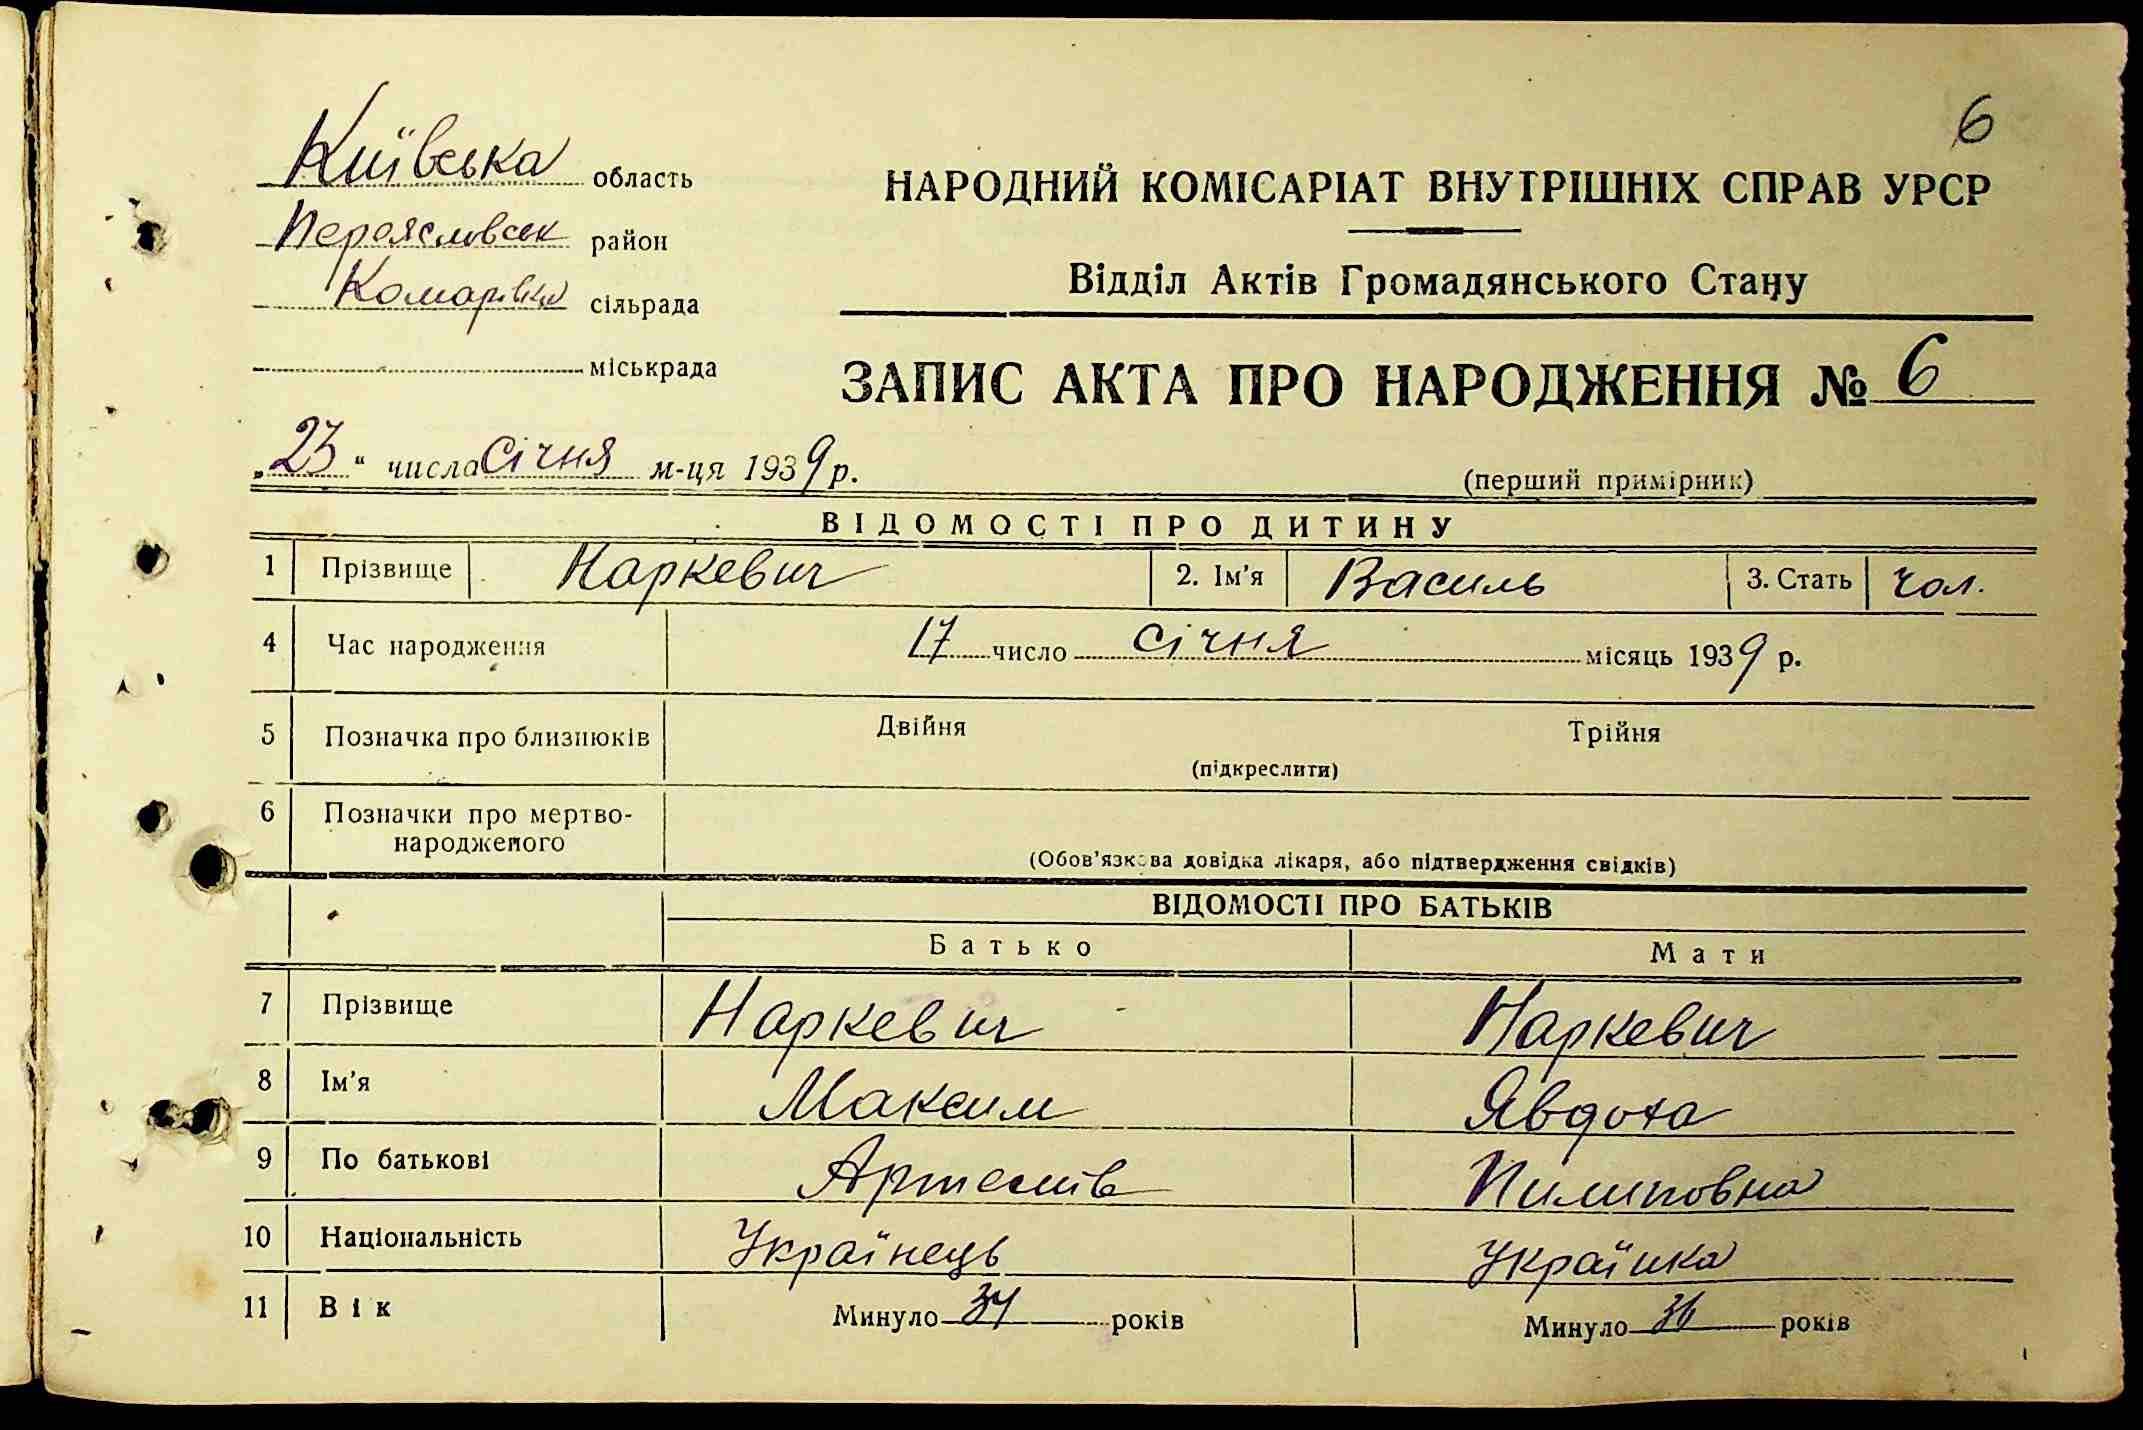 6
Київська область
НАРОДНИЙ КОМІСАРІАТ ВНУТРІШНІХ СПРАВ УРСР
Переяславськ район
Комарівка сільрада
Відділ Актів Громадянського Стану
міськрада
ЗАПИС АКТА ПРО НАРОДЖЕННЯ № 6
„23“ числа Січня м-ця 1939 р.
(перший примірник)
ВІДОМОСТІ ПРО ДИТИНУ
1 Прізвище Наркевич 2. Ім'я Василь 3. Стать чол.
4 Час народження 17 число Січня місяць 1939 р.
5 Позначка про близнюків Двійня Трійня
(підкреслити)
6 Позначки про мертво-
народженого
(Обов'язкова довідка лікаря, або підтвердження свідків)
ВІДОМОСТІ ПРО БАТЬКІВ
Батько Мати
7 Прізвище Наркевич Наркевич
8 Ім'я Максим Явдоха
9 По батькові Артемів Пилиповна
10 Національність Українець Українка
11 Вік Минуло 34 років Минуло 36 років